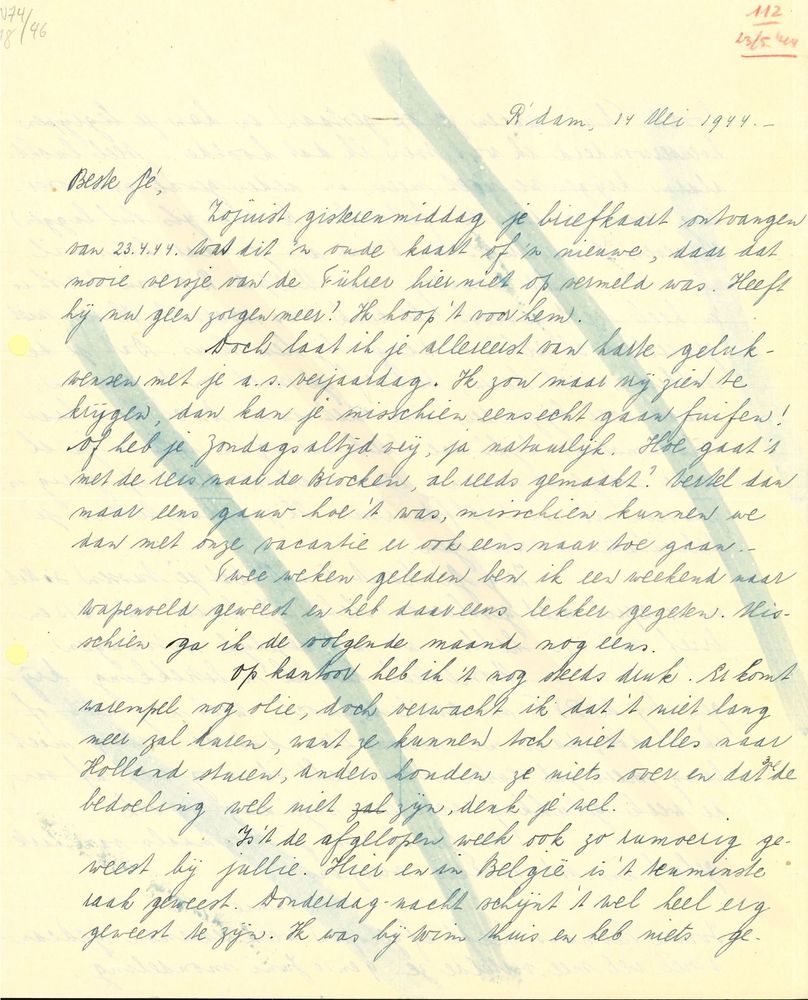 V74/46
18
112
23/5.'44
R'dam, 14 Mei 1944.-
Beste Jé,
Zojuist gisterenmiddag je briefkaart ontvangen
van 23.4.44. Was dit 'n oude kaart of 'n nieuwe, daar dat
mooie versje van de Führer hier niet op vermeld was. Heeft
hij nu geen zorgen meer? Ik hoop 't voor hem.
Doch laat ik je allereerst van harte geluk-
wensen met je a.s. verjaardag. Ik zou maar vrij zien te
krijgen, dan kan je misschien eens echt gaan fuifen!
Of heb je Zondags altijd vrij, ja natuurlijk. Hoe gaat 't
met de reis naar de Brocken, al reeds gemaakt? Vertel dan
maar eens gauw hoe 't was, misschien kunnen we
dan met onze vacantie er ook eens naar toe gaan.-
Twee weken geleden ben ik een weekend naar
Wapenveld geweest en heb daar eens lekker gegeten. Mis-
schien ga ik de volgende maand nog eens.
Op kantoor heb ik 't nog steeds druk. Er komt
warempel nog olie, doch verwacht ik dat 't niet lang
meer zal duren, want ze kunnen toch niet alles naar
Holland sturen, anders houden ze niets over en dat zal de
bedoeling wel niet zal zijn, denk je wel.
Is 't de afgelopen week ook zo rumoerig ge-
weest bij jullie. Hier en in België is 't tenminste
raak geweest. Donderdag-nacht schijnt 't wel heel erg
geweest te zijn. Ik was bij Wim thuis en heb niets ge-